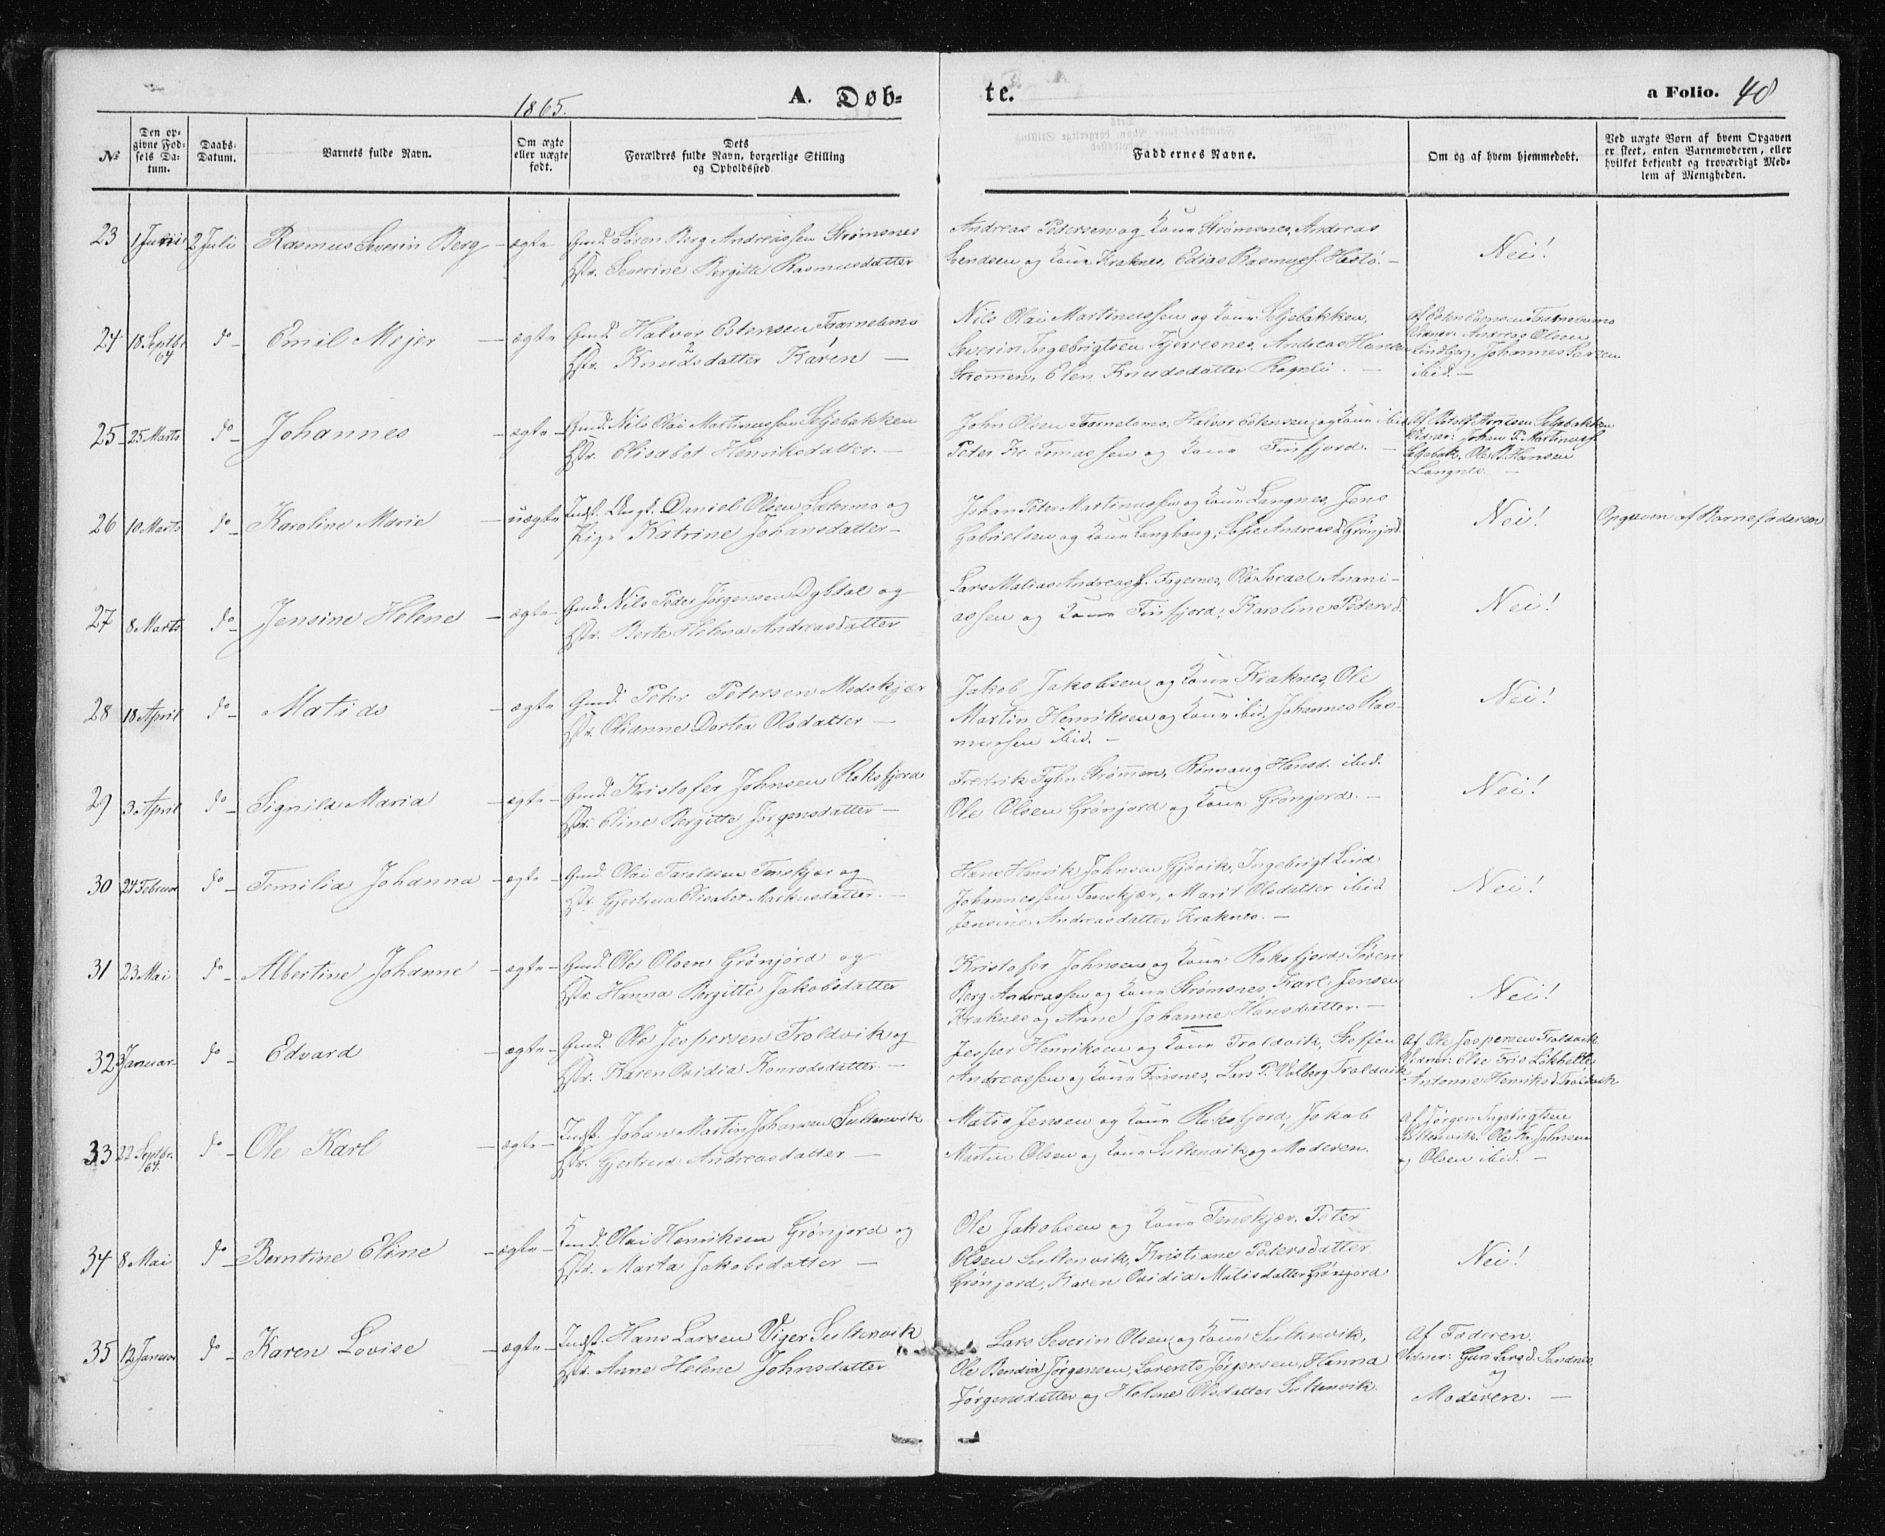 1865.
A. Døb=
te.
a Folio. 48
№
Den op=
givne Fød=
sels Da=
tum.
Daabs=
Datum.
Barnets fulde Navn.
Om ægte
eller uægte
født.
Dets
Forældres fulde Navn, borgerlige Stilling
og Opholdssted
Faddernes Navne.
Om og af hvem hjemmedøbt.
Ved uægte Børn af hvem Opgaven
er skeet, enten Barnemoderen, eller
hvilket bekjendt og troværdigt Med=
lem af Menigheden.
23 1 Juni 2 Juli Rasmus Severin Berg – ægte Gmd. Søren Berg Andreassen Strømsnes
Hstr. Severine Bergitte Rasmusdatter
Andreas Pedersen og Kone Strømsnes, Andreas
Svendsen og Kone Kraknes, Edias Rasmuss. Hestø. –
Nei!
24 18 Septbr. 64 do – Emil Mejer – ægte Gmd. Halvor Estensen Tarnelvmo
Hstr. Knudsdatter Karen –
Nils Olai Martinussen og Kone Seljebakken,
Severin Ingebrigtsen Fjerresnes, Andreas Hansen
Strømmen, Elen Knudsdatter Rognli. –
Af Esten
Vidner: Andreas Olsen
Lindberg, Johannes Larsen
ibid. –
25 – 25 Marts do – Johannes – ægte – Gmd. Nils Olai Martinussen Seljebakken
Hstr. Elisabet Henriksdatter. –
John Olsen Tarnelvmo, Halvor Estensen og Kone ibid.
Peter Kr. Tomassen og Kone Finfjord. –
Af Arntsen Seljebakken
Vidner: Johan P. Martinuss.
Seljebak, Ole B. Hansen
Langnes. –
26 10 Marts do – Karoline Marie – uægte Indst. Ungk. Daniel Olsen Sætermo og
Pige Katrine Johansdatter –
Johan Peter Martinussen og Kone Langnes, Jens
Gabrielsen og Kone Langhaug, Sofie Andreasd. Grønjord.
Nei!
Opgaven af Barnefaderen
27 8 Marts do – Jensine Helene – ægte – Gmd. Nils Peder Jørgensen Dybdal og
Hstr. Berte Helena Andreasdatter
Lars Matias Andreass. Fagernes, Ole Israel Anani –
assen og Kone Finfjord, Karoline Pedersd.
Nei!
28 18 April do – Matids – ægte Gmd. Peter Petersen Medskjær
Hstr. Olianne Dortea Olsdatter –
Jakob Jakobsen og Kone Kraknes, Ole
Martin Henriksen og Kone ibid, Johannes Ras-
mussen ibid. –
Nei!
29 3 April do – Signild Maria – ægte – Gmd. Kristofer Johnsen Roksfjord
Hstr. Eline Bergitte Jørgensdatter –
Fredrik Strømmen, Rønnaug Hansd. ibid.
Ole Olsen Grønjord og Kone Grønjord. –
Nei!
30 24 Februar do – Temilia Johanna – ægte – Gmd. Olai Taraldsen Tenskjær og
Hstr. Gjertrud Elisabet Markusdatter. –
Hans Henrik Johnsen Gjøvik, Ingebrigt Lind
Johannessen Tenskjær, Marit Olsdatter ibid
Jensine Andreasdatter Kraknes. –
Nei!
31 23 Mai do – Albertine Johanne – ægte – Gmd. Ole Olsen Grønjord og
Hstr. Hanna Bergitte Jakobsdatter
Kristofer Johnsen og Kone Roksfjord, Søren
Berg Andreassen og Kone Strømsnes, Karl Jensen
Kraknes og Anne Johanne Hansdatter. –
Nei!
32 3 Januar do – Edvard – ægte – Gmd. Ole Jespersen Troldvik og
Hstr. Karen Ovidia Konradsdatter –
Jesper Henriksen og Kone Troldvik, Steffen
Andreassen og Kone Finsnes, Lars P. Valberg Troldvik
Af Ole Jespersen Troldvik
Vidner: Else Løkhelle,
Antonne Henriksd. Troldvik
33 22 Septbr. 64 do – Ole Karl – ægte – Indst. Johan Martin Johansen Sultenvik
Hstr. Gjertrud Andreasdatter –
Matis Jensen og Kone Roksfjord, Jakob
Martin Olsen og Kone Sultenvik og Moderen.
Af Jørgen Ingebrigtsen
Sultenvik: Ole Kr. Johnsen
og Olsen ibid. –
34 8 Mai do – Berntine Eline – ægte – Gmd. Olai Henriksen Grønjord og
Hstr. Marta Jakobsdatter –
Ole Jakobsen og Kone Tenskjær, Peter
Olsen Sultenvik, Kristiane Petersdatter
Grønjord, Karen Ovidia Matisdatter Grønjord
Nei!
35 12 Januar do – Karen Lovise – ægte – Indst. Hans Larsen Viger Sultenvik
Hstr. Anne Helene Johnsdatter
Lars Severin Olsen og Kone Sultenvik,
Ole Bendix Jørgensen, Lorents Jørgensen, Hanna
Jørgensdatter og Helene Olsdatter Sultenvik.
Af Faderen.
Vidner: Guri Larsd. Sandnes
og
Moderen. –